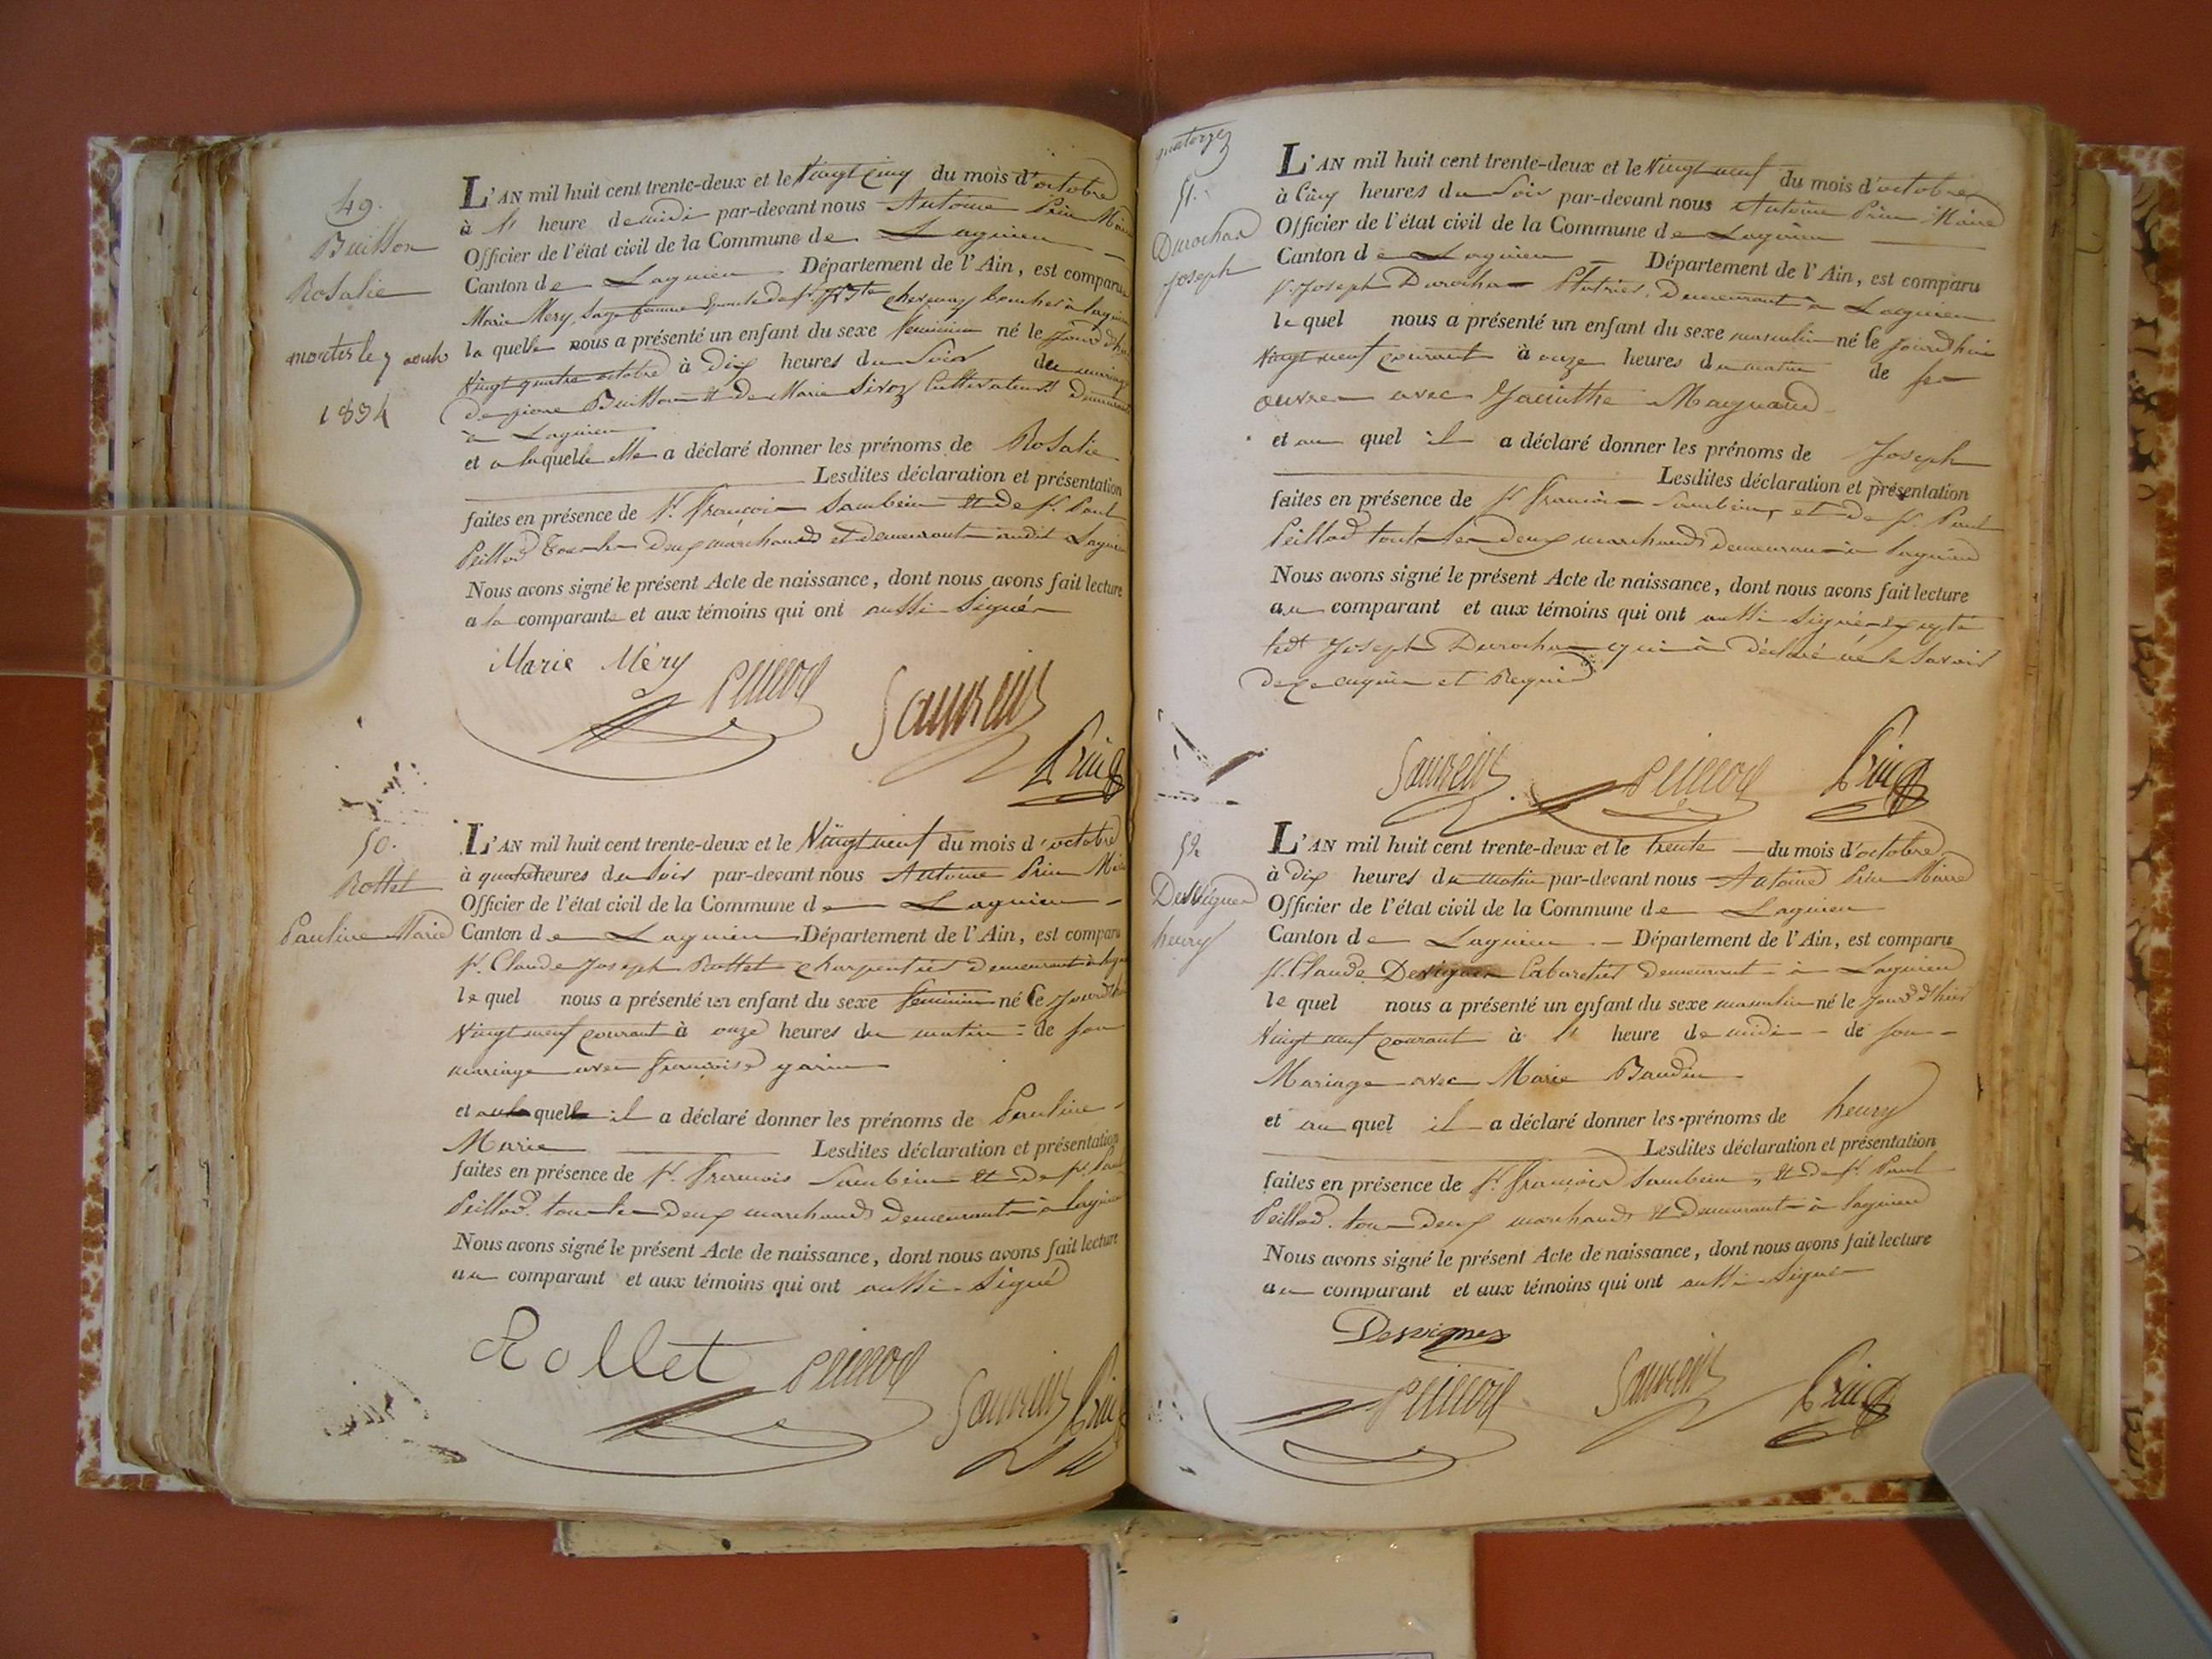 49.
Buisson
Rosalie
morte le 7 aout
1834
L'AN mil huit cent trente-deux et le Vingt cinq du mois d'octobre
à 1 heure de midi par-devant nous Antoine Prin Maire
Officier de l'état civil de la Commune de Lagnieu
Canton de Lagnieu Département de l'Ain, est comparu
Marie Mery, sage femme
la quelle nous a présenté un enfant du sexe feminin né le jourd'hui
Vingt quatre octobre à Dix heures du Soir du mariage
de pierre Buisson et de Marie Sivoz Cultivateurs Demeurant
à Lagnieu
et a laquelle elle a déclaré donner les prénoms de Rosalie
Lesdites déclaration et présentation
faites en présence de Sr. françois Saubein et de Sr. Paul
Peillod Tous les Deux marchands et demeurant audit Lagnieu
Nous avons signé le présent Acte de naissance, dont nous avons fait lecture
a la comparante et aux témoins qui ont aussi signés
Marie Méry
Peillod
Prin
50.
Rottet
Pauline Marie
L'AN mil huit cent trente-deux et le Vingt neuf du mois d'octobre
à quatre heures du soir par-devant nous Antoine Prin Maire
Officier de l'état civil de la Commune de Lagnieu
Canton de Lagnieu Département de l'Ain, est comparu
Sr. Claude Joseph Rottet charpentier demeurant à Lagnieu
le quel nous a présenté un enfant du sexe feminin né le jourd'hui
Vingt neuf courant à onze heures du matin de son
mariage avec françoise garin
et a laquelle il a déclaré donner les prénoms de Pauline
Marie Lesdites déclaration et présentation
faites en présence de Sr. francois Saubein et de Sr. Paul
Peillod. tous les deux marchands demeurant à Lagnieu
Nous avons signé le présent Acte de naissance, dont nous avons fait lecture
au comparant et aux témoins qui ont aussi signé
Rollet
Peillod
Prin
quatorze
51.
Durochat
joseph
L'AN mil huit cent trente-deux et le Vingt neuf du mois d'octobre
à Cinq heures du Soir par-devant nous Antoine Prin Maire
Officier de l'état civil de la Commune de Lagnieu
Canton de Lagnieu Département de l'Ain, est comparu
Sr. Joseph Durochat Platrier, Demeurant à Lagnieu
le quel nous a présenté un enfant du sexe masculin né le jourd'hui
Vingt neuf courant à onze heures du matin de ses
œuvres avec Jacinthe Maynand
et au quel il a déclaré donner les prénoms de Joseph
Lesdites déclaration et présentation
faites en présence de Sr françois Saubein, et de Sr. Paul
Peillod tous les deux marchands demeurant à Lagnieu
Nous avons signé le présent Acte de naissance, dont nous avons fait lecture
au comparant et aux témoins qui ont aussi signés excepté
ledt Joseph Durochat qui à déclaré ne le savoir
de ce enquis et Requis
Peillod
Prin
52
Dessigne
henry
L'AN mil huit cent trente-deux et le trente du mois d'octobre
à Dix heures du matin par-devant nous Antoine Prin Maire
Officier de l'état civil de la Commune de Lagnieu
Canton de Lagnieu Département de l'Ain, est comparu
Sr. Claude Designes Cabaretier demeurant à Lagnieu
le quel nous a présenté un enfant du sexe masculin né le jourd'hui
Vingt neuf courant à 1 heure de midi de son
Mariage avec Marie Baudin
et au quel il a déclaré donner les prénoms de henry
Lesdites déclaration et présentation
faites en présence de Sr. françois Saubein, et de Sr. Paul
Peillod. tous deux marchands et demeurant à Lagnieu
Nous avons signé le présent Acte de naissance, dont nous avons fait lecture
au comparant et aux témoins qui ont aussi signés
Dessignes
Peillod
Prin